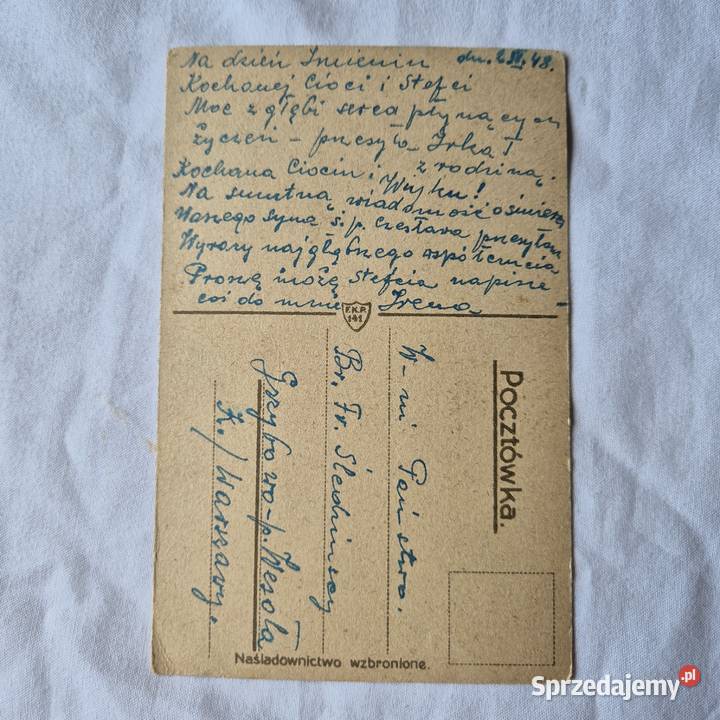 Na dzień Imienin dn. 6 XII. 48.
Kochanej Cioci i Stefci
Moc z głębi serca płynących
Życzeń - przesyła Irka T
z rodziną.
Kochana Ciociu i Wujku!
Na smutną wiadomość o śmierci
Waszego syna ś.p. Czesława przesyłam
Wyrazy najgłębszego współczucia
Proszę może Stefcia napisze
coś do mnie Irena
F.K.P.
141
Pocztówka.
W-ni Państwo.
Br. Fr. Śledzińscy
Grzybowo-p. Wesoła
K./Warszawy.
Naśladownictwo wzbronione.
Sprzedajemy.pl